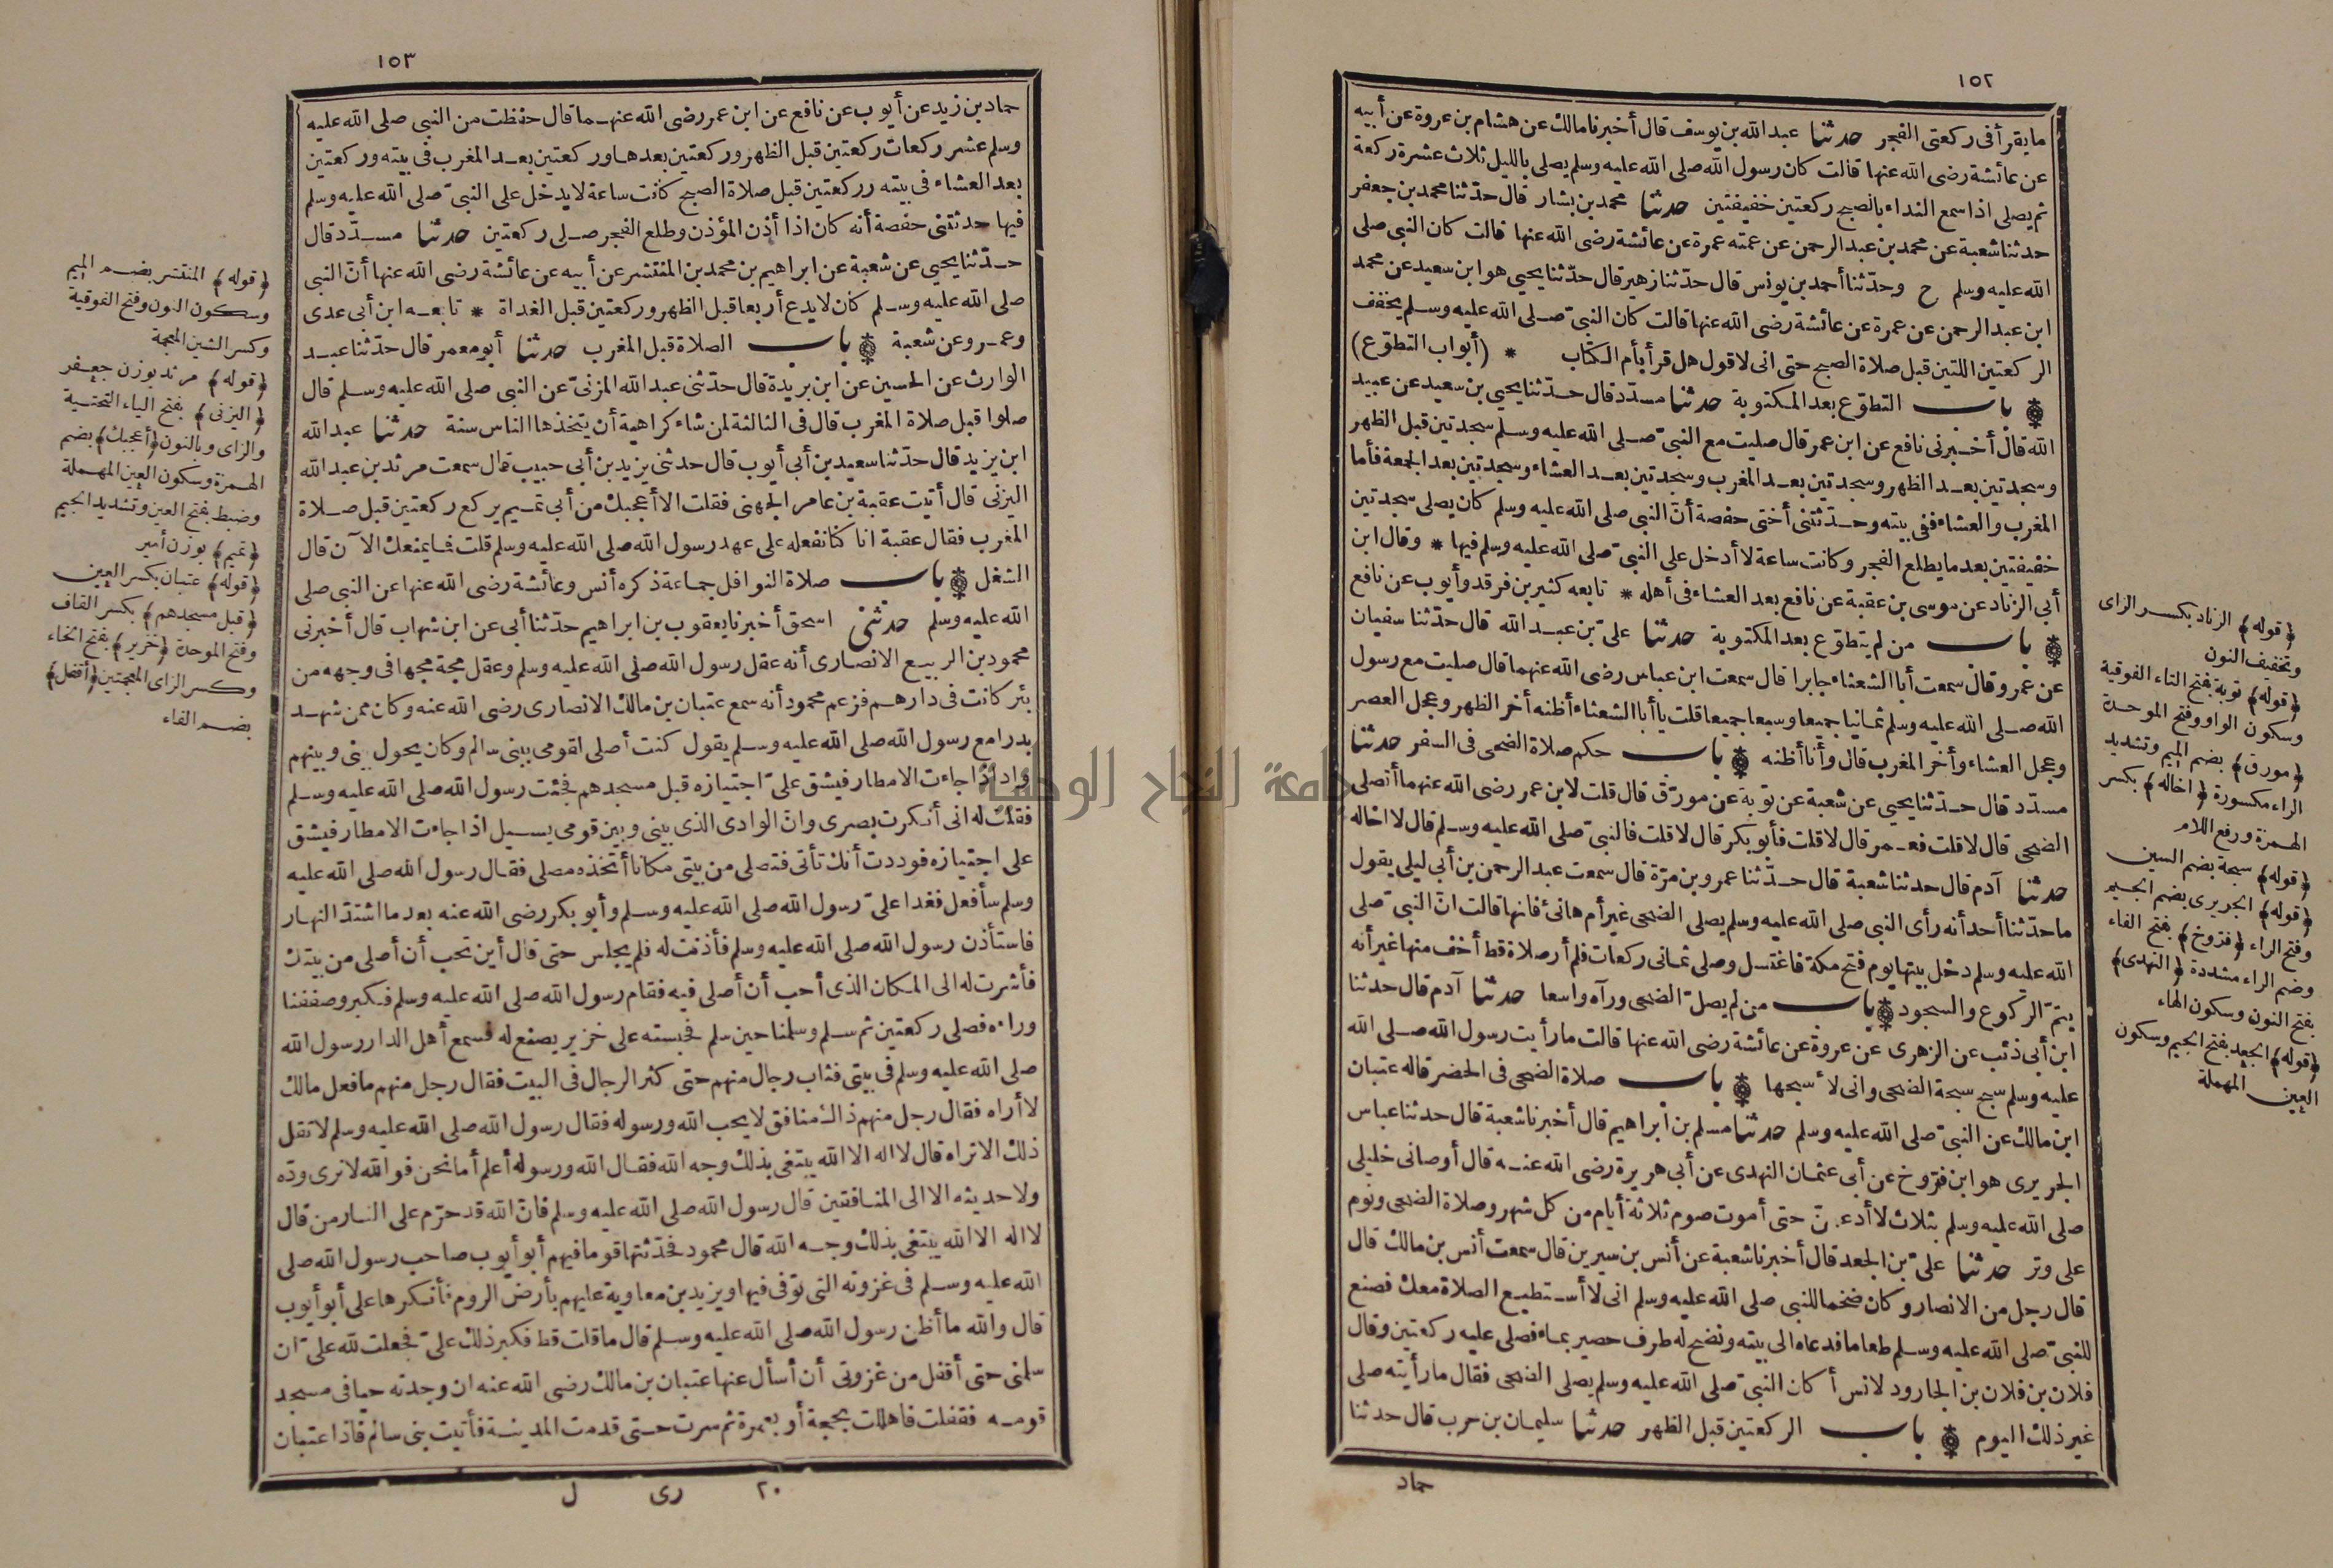 ١٥٢
ما يقرأ فى ركعتى الفجر حدثنا عبد الله بن يوسف قال أخبرنا مالك عن هشام بن عروة عن أبيه
عن عائشة رضى الله عنها قالت كان رسول الله صلى الله عليه وسلم يصلى بالليل ثلاث عشرة ركعة
ثم يصلى اذا سمع النداء بالصبح ركعتين خفيفتين حدثنا محمد بن بشار قال حدّثنا محمد بن جعفر
حدثنا شعبة عن محمد بن عبد الرحمن عن عمته عمرة عن عائشة رضى الله عنها قالت كان النبى صلى
الله عليه وسلم ح وحدّثنا أحمد بن يونس قال حدّثنا زهير قال حدّثنا يحيى هو ابن سعيد عن محمد
ابن عبد الرحمن عن عمرة عن عائشة رضى الله عنها قالت كان النبىّ صلى الله عليه وسلم يخفف
الركعتين اللتين قبل صلاة الصبح حتى انى لاقول هل قرأ بأم الكتاب * (أبواب التطوّع)
باب التطوّع بعد المكتوبة حدثنا مسدّد قال حدّثنا يحيى بن سعيد عن عبيد
الله قال أخبرنى نافع عن ابن عمر قال صليت مع النبىّ صلى الله عليه وسلم سجدتين قبل الظهر
وسجدتين بعد الظهر وسجدتين بعد المغرب وسجدتين بعد العشاء وسجدتين بعد الجمعة فأما
المغرب والعشاء ففى بيته وحدّثتنى أختى حفصة أنّ النبى صلى الله عليه وسلم كان يصلى سجدتين
خفيفتين بعد ما يطلع الفجر وكانت ساعة لا أدخل على النبىّ صلى الله عليه وسلم فيها * وقال ابن
أبى الزناد عن موسى بن عقبة عن نافع بعد العشاء فى أهله * تابعه كثير بن فرقد وأيوب عن نافع
باب من لم يتطوّع بعد المكتوبة حدثنا علىّ بن عبد الله قال حدّثنا سفيان
عن عمرو قال سمعت أبا الشعثاء جابرا قال سمعت ابن عباس رضى الله عنهما قال صليت مع رسول
الله صلى الله عليه وسلم ثمانيا جميعا وسبعا جميعا قلت يا أبا الشعثاء أظنه أخر الظهر وعجل العصر
وعجل العشاء وأخر المغرب قال وأنا أظنه باب حكم صلاة الضحى فى السفر حدثنا
مسدّد قال حدّثنا يحيى عن شعبة عن توبة عن مورّق قال قلت لابن عمر رضى الله عنهما أتصلى
الضحى قال لا قلت فعمر قال لا قلت فأبو بكر قال لا قلت فالنبىّ صلى الله عليه وسلم قال لا اخاله
حدثنا آدم قال حدثنا شعبة قال حدّثنا عمرو بن مرّة قال سمعت عبد الرحمن بن أبى ليلى يقول
ما حدّثنا أحد أنه رأى النبى صلى الله عليه وسلم يصلى الضحى غير أم هانئ فانها قالت انّ النبىّ صلى
الله عليه وسلم دخل بيتها يوم فتح مكة فاغتسل وصلى ثمانى ركعات فلم أر صلاة قط أخف منها غير أنه
يتمّ الركوع والسجود باب من لم يصلّ الضحى ورآه واسعا حدثنا آدم قال حدثنا
ابن أبى ذئب عن الزهرى عن عروة عن عائشة رضى الله عنها قالت ما رأيت رسول الله صلى الله
عليه وسلم سبح سبحة الضحى وانى لأسبحها باب صلاة الضحى فى الحضر قاله عتبان
ابن مالك عن النبىّ صلى الله عليه وسلم حدثنا مسلم بن ابراهيم قال أخبرنا شعبة قال حدثنا عباس
الجريرى هو ابن فرّوخ عن أبى عثمان النهدى عن أبى هريرة رضى الله عنه قال أوصانى خليلى
صلى الله عليه وسلم بثلاث لا أدعهنّ حتى أموت صوم ثلاثة أيام من كل شهر وصلاة الضحى ونوم
على وتر حدثنا علىّ بن الجعد قال أخبرنا شعبة عن أنس بن سيرين قال سمعت أنس بن مالك قال
قال رجل من الانصار وكان ضخما للنبى صلى الله عليه وسلم انى لا أستطيع الصلاة معك فصنع
للنبىّ صلى الله عليه وسلم طعاما فدعاه الى بيته ونضح له طرف حصير بماء فصلى عليه ركعتين وقال
فلان بن فلان بن الجارود لانس أكان النبىّ صلى الله عليه وسلم يصلى الضحى فقال ما رأيته صلى
غير ذلك اليوم باب الركعتين قبل الظهر حدثنا سليمان بن حرب قال حدثنا
حماد
(قوله) الزناد بكسر الزاى
وتخفيف النون
(قوله) توبة بفتح التاء الفوقية
وسكون الواو وفتح الموحدة
(مورق) بضم الميم وتشديد
الراء مكسورة (اخاله) بكسر
الهمزة ورفع اللام
(قوله) سبحة بضم السين
(قوله) الجريرى بضم الجيم
وفتح الراء (فرّوخ) بفتح الفاء
وضم الراء مشددة (النهدى)
بفتح النون وسكون الهاء
(قوله) الجعد بفتح الجيم وسكون
العين المهملة
١٥٣
حماد بن زيد عن أيوب عن نافع عن ابن عمر رضى الله عنهما قال حفظت من النبى صلى الله عليه
وسلم عشر ركعات ركعتين قبل الظهر وركعتين بعدها وركعتين بعد المغرب فى بيته وركعتين
بعد العشاء فى بيته وركعتين قبل صلاة الصبح كانت ساعة لا يدخل على النبىّ صلى الله عليه وسلم
فيها حدثتنى حفصة أنه كان اذا أذن المؤذن وطلع الفجر صلى ركعتين حدثنا مسدّد قال
حدّثنا يحيى عن شعبة عن ابراهيم بن محمد بن المنتشر عن أبيه عن عائشة رضى الله عنها أنّ النبى
صلى الله عليه وسلم كان لا يدع أربعا قبل الظهر وركعتين قبل الغداة * تابعه ابن أبى عدى
وعمرو عن شعبة باب الصلاة قبل المغرب حدثنا أبو معمر قال حدّثنا عبد
الوارث عن الحسين عن ابن بريدة قال حدّثنى عبد الله المزنىّ عن النبى صلى الله عليه وسلم قال
صلوا قبل صلاة المغرب قال فى الثالثة لمن شاء كراهية أن يتخذها الناس سنة حدثنا عبد الله
ابن يزيد قال حدّثنا سعيد بن أبى أيوب قال حدثنى يزيد بن أبى حبيب قال سمعت مرثد بن عبد الله
اليزنى قال أتيت عقبة بن عامر الجهنى فقلت الا أعجبك من أبى تميم يركع ركعتين قبل صلاة
المغرب فقال عقبة انا كنا نفعله على عهد رسول الله صلى الله عليه وسلم قلت فما يمنعك الآن قال
الشغل باب صلاة النوافل جماعة ذكره أنس وعائشة رضى الله عنها عن النبى صلى
الله عليه وسلم حدثنى اسحق أخبرنا يعقوب بن ابراهيم حدّثنا أبى عن ابن شهاب قال أخبرنى
محمود بن الربيع الانصارى أنه عقل رسول الله صلى الله عليه وسلم وعقل مجة مجها فى وجهه من
بئر كانت فى دارهم فزعم محمود أنه سمع عتبان بن مالك الانصارى رضى الله عنه وكان ممن شهد
بدرا مع رسول الله صلى الله عليه وسلم يقول كنت أصلى لقومى ببنى سالم وكان يحول بينى وبينهم
واد اذا جاءت الامطار فيشق علىّ اجتيازه قبل مسجدهم فجئت رسول الله صلى الله عليه وسلم
فقلت له انى أنكرت بصرى وانّ الوادى الذى بينى وبين قومى يسيل اذا جاءت الامطار فيشق
على اجتيازه فوددت أنك تأتى فتصلى من بيتى مكانا أتخذه مصلى فقال رسول الله صلى الله عليه
وسلم سأفعل فغدا علىّ رسول الله صلى الله عليه وسلم وأبو بكر رضى الله عنه بعد ما اشتدّ النهار
فاستأذن رسول الله صلى الله عليه وسلم فأذنت له فلم يجلس حتى قال أين تحب أن أصلى من بيتك
فأشرت له الى المكان الذى أحب أن أصلى فيه فقام رسول الله صلى الله عليه وسلم فكبر وصففنا
وراءه فصلى ركعتين ثم سلم وسلمنا حين سلم فحبسته على خزير يصنع له فسمع أهل الدار رسول الله
صلى الله عليه وسلم فى بيتى فثاب رجال منهم حتى كثر الرجال فى البيت فقال رجل منهم ما فعل مالك
لا أراه فقال رجل منهم ذاك منافق لا يحب الله ورسوله فقال رسول الله صلى الله عليه وسلم لا تقل
ذلك الا تراه قال لا اله الا الله يبتغى بذلك وجه الله فقال الله ورسوله أعلم أما نحن فوالله لا نرى ودّه
ولا حديثه الا الى المنافقين قال رسول الله صلى الله عليه وسلم فانّ الله قد حرّم على النار من قال
لا اله الا الله يبتغى بذلك وجه الله قال محمود فحدّثتها قوما فيهم أبو أيوب صاحب رسول الله صلى
الله عليه وسلم فى غزوته التى توفى فيها ويزيد بن معاوية عليهم بأرض الروم فأنكرها على أبو أيوب
قال والله ما أظن رسول الله صلى الله عليه وسلم قال ما قلت قط فكبر ذلك علىّ فجعلت لله علىّ ان
سلمنى حتى أقفل من غزوتى أن أسأل عنها عتبان بن مالك رضى الله عنه ان وجدته حيا فى مسجد
قومه فقفلت فاهللت بحجة أو بعمرة ثم سرت حتى قدمت المدينة فأتيت بنى سالم فاذا عتبان
٢٠ رى ل
(قوله) المنتشر بضم الميم
وسكون النون وفتح الفوقية
وكسر الشين المعجمة
(قوله) مرثد بوزن جعفر
(اليزنى) بفتح الياء التحتية
والزاى وبالنون (أعجبك) بضم
الهمزة وسكون العين المهملة
وضبط بفتح العين وتشديد الجيم
(تميم) بوزن أمير
(قوله) عتبان بكسر العين
(قبل مسجدهم) بكسر القاف
وفتح الموحدة (خزير) بفتح الخاء
وكسر الزاى المعجمتين (أقفل)
بضم الفاء
جامعة النجاح الوطنية